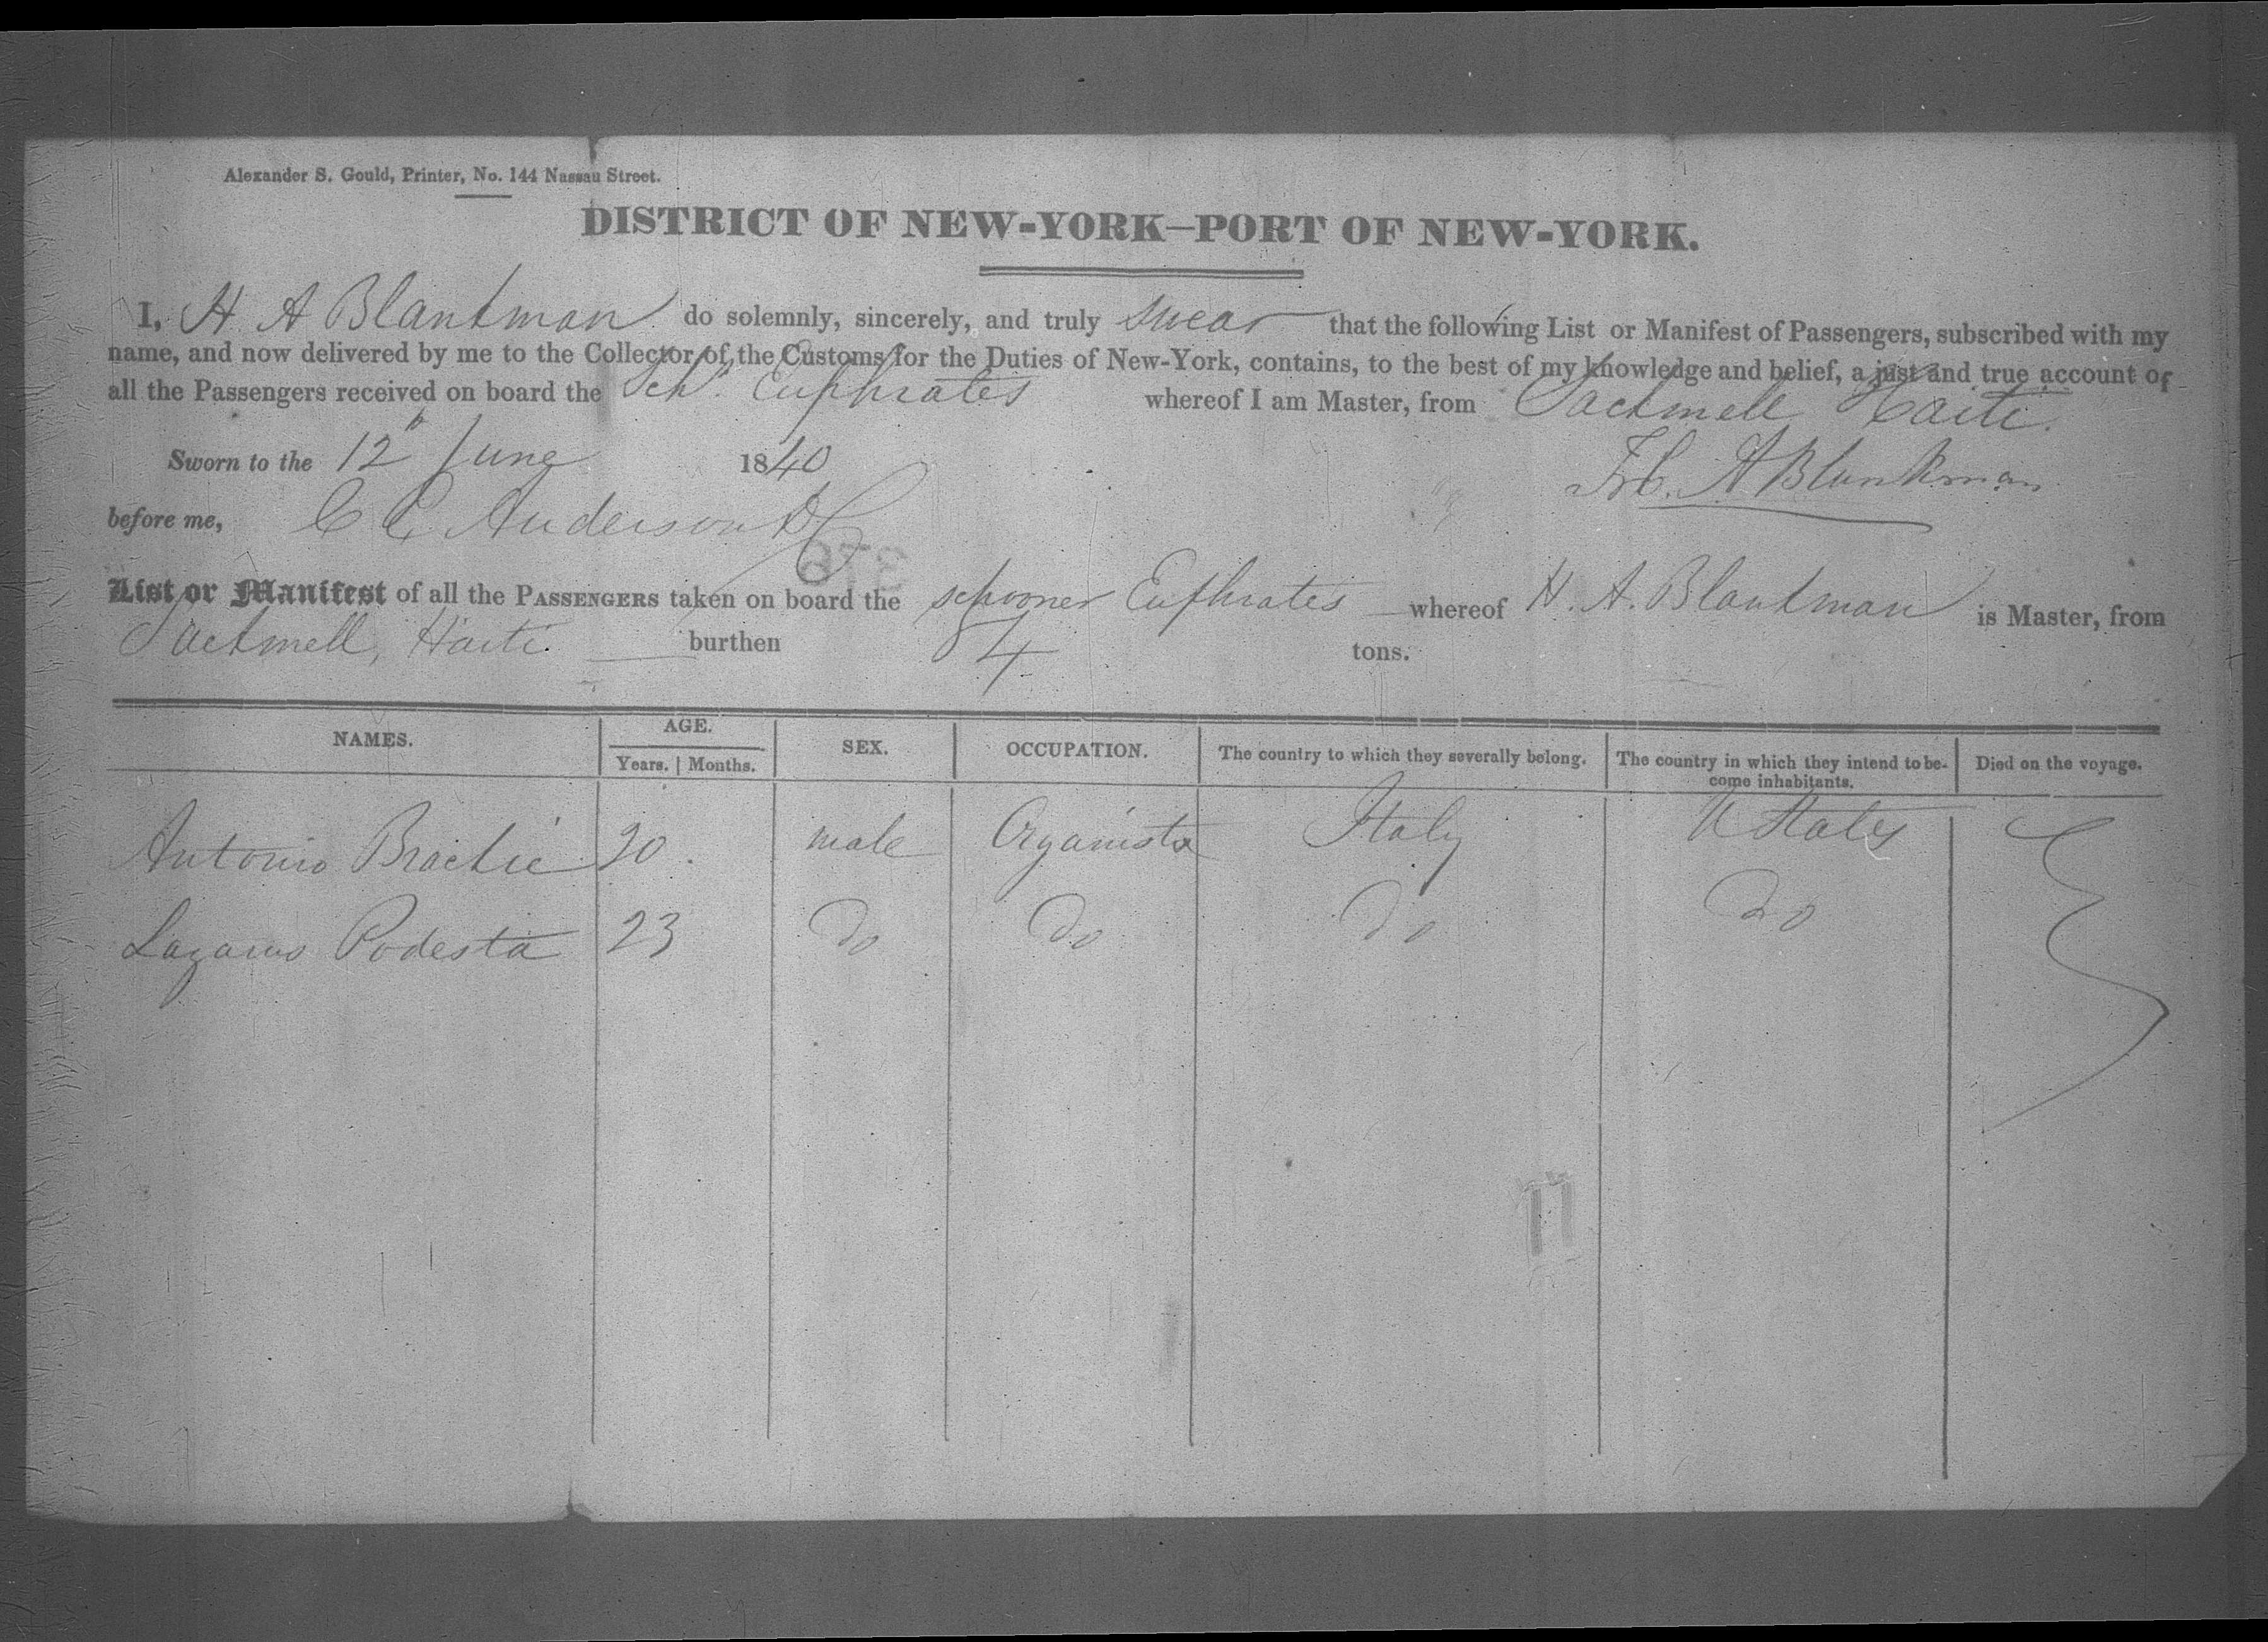 Alexander S. Gould, Printer, No. 144 Nassau Street.
DISTRICT OF NEW-YORK—PORT OF NEW-YORK.
I, H. A Blankman do solemnly, sincerely, and truly swear that the following List or Manifest of Passengers, subscribed with my
name, and now delivered by me to the Collector of the Customs for the Duties of New-York, contains, to the best of my knowledge and belief, a just and true account of
all the Passengers received on board the Schr. Euphrates whereof I am Master, from Jackmell Haiti.
Sworn to the 12" June 1840
H. A Blankman
before me, C C Anderson
List or Manifest of all the PASSENGERS taken on board the schooner Euphrates whereof H. A. Blankman is Master, from
Jackmell, Haiti. burthen 84 tons.
NAMES. AGE. SEX. OCCUPATION. The country to which they severally belong. The country in which they intend to be- Died on the voyage.
Years. | Months. come inhabitants.
Antonio 20. male Organista Italy U States
Lazarus Podesta 23 Do Do Do Do